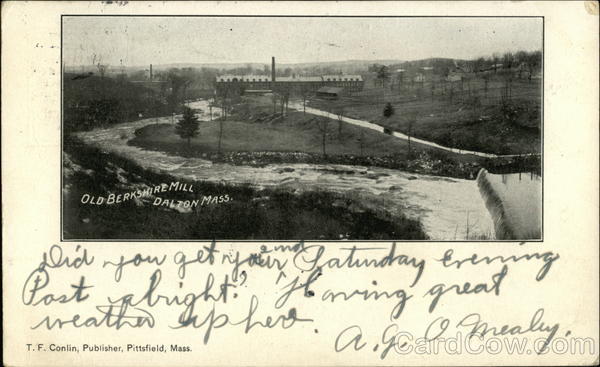 Old Berkshire Mill
Dalton Mass.
Did you get your 2nd Saturday evening
Post alright? Having great
weather up her.
A. G. O'Mealey.
T. F. Conlin, Publisher, Pittsfield, Mass.
CardCow.com